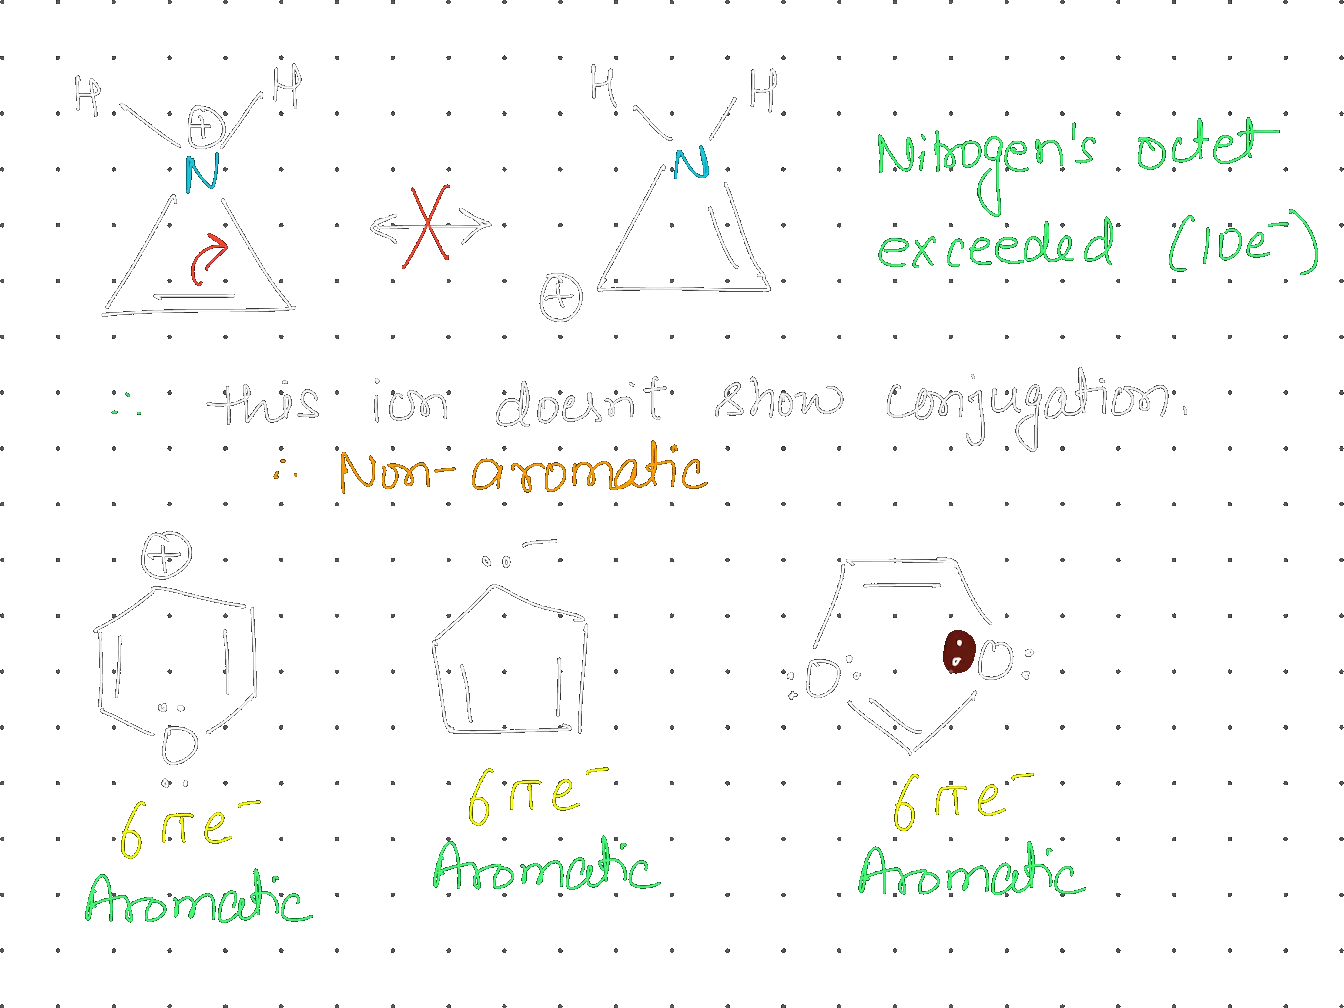 H H H H
⊕
N N
Nitrogen's octet
exceeded (10e⁻)
⊕
∴ this ion doesn't show conjugation.
∴ Non-aromatic
⊕
O :O: O:
6πe⁻ 6πe⁻ 6πe⁻
Aromatic Aromatic Aromatic